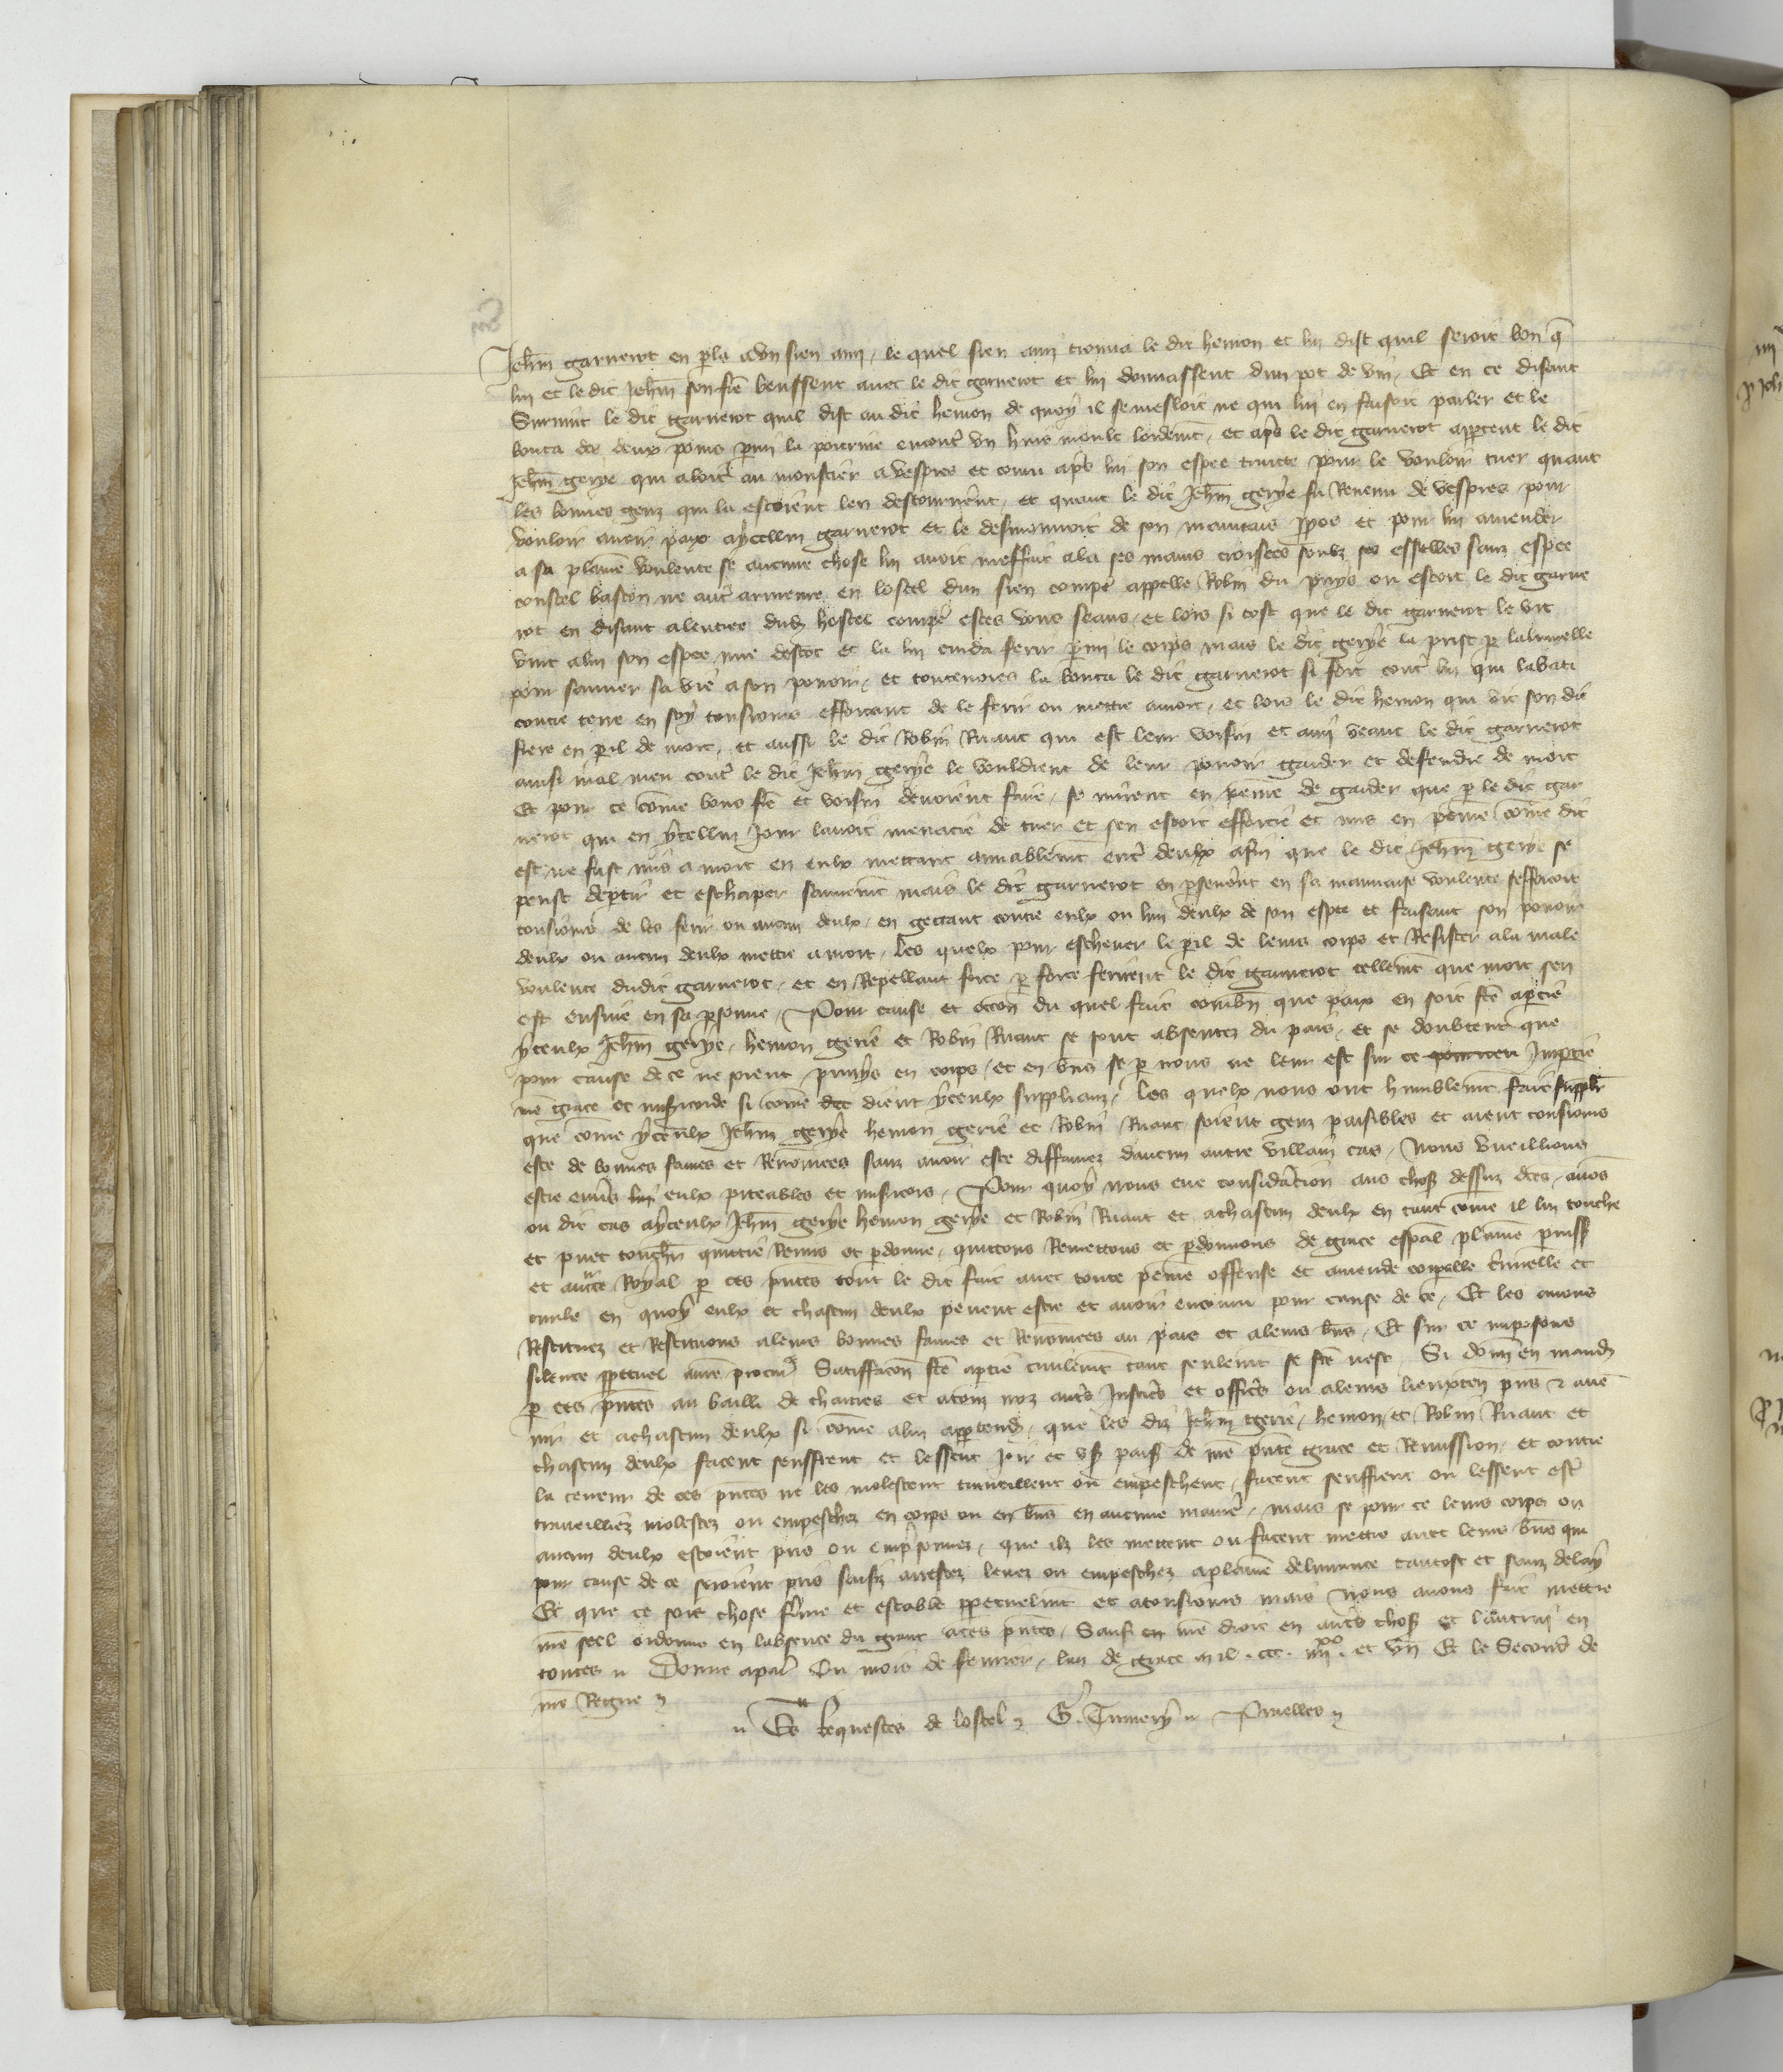 Jeh̄n garnerot en p̄la a un sien ami, le quel sien ami trouva le dit hemon et lui dist quil seroit bon q̄
lui et le dit Jeh̄n son frē beussent avec le dit garnerot et lui donnassent dun pot de vin. Et en ce disant
Survint le dit garnerot quil dist au dit hemon de quoy il se mesloit ne qui lui en faisoit parler et le
bouta des deux poins p̄mi la poitrine encont̄ un huis moult lordemēt, et ap̄s le dit garnerot app̄ceut le dit
Jeh̄n gerye qui aloit au moustier a vespres et couru ap̄s lui son espee traitte pour le vouloir tuer quant
les bonnes genz qui la estoient len destournerēt, et quant le dit Jeh̄n gerye fu Revenu de vespres pour
vouloir avoir paix aycellui garnerot et le desmouvoir de son mauvais p̄pos et pour lui amender
a sa plainē voulente se aucune chose lui avoit meffait ala ses mains croisees soubz ses esselles sanz espee
coustel baston ne aut̄ armeure en lostel dun sien compē appelle Robin du puys ou estoit le dit garne
rot en disant alentree dud hostel compē estes vous seans, et lors si tost que le dit garnerot le vit
vint a lui son espee nue destoc et la lui cuida ferir p̄mi le corps mais le dit gerye la prist p̄ lalumelle
pour sauver sa vie a son povoir, et toutevoies la bouta le dit garnerot si fort cont̄ lui qui labati
contre terre en soy tousjours efforcant de le ferir ou mettre amort, et lors le dit hemon qui vit son dit
frere en p̄il de mort, et aussi le dit Robin Ruaut qui est leur voisin et ami veant le dit garnerot
ainsi mal meu cont̄ le dit Jeh̄n gerye le vouldrent de leur povoir garder et defendre de mort
Et pour ce cōme bons frē et voisin devoient faire, se mirent en peine de garder que p̄ le dit gar
nerot qui en ycellui jour lavoit menacie de tuer et sen estoit efforcie et mis en peine cōme dit
est ne fust mis a mort en eulx mettant amiablemēt ent̄ deulx afin que le dit Jeh̄n gerye se
peust dep̄tir et eschaper sauvemēt mais le dit garnerot en p̄severāt en sa mauvaise voulente sefforcoit
tousjours de les ferir ou aucun deulx, en gettant contre eulx ou lun deulx de son espee et faisant son povoir
deulx ou aucun deulx mettre amort, les quelx pour eschever le p̄il de leurs corps et Resister ala male
voulente dudit garnerot, et en Repellant force p̄ force ferirent le dit garnerot tellemēt que mort sen
est ensuie en sa p̄sonne. Pour cause et occōn du quel fait combn̄ que paix en soit fcē a p̄tie
yceulx Jeh̄n gerye, hemon gerie et Robin Ruaut se sont absentez du pais, et se doubtent que
pour cause de ce ne soient puniys en corps, et en bn̄s se p̄ nous ne leur est sur ce pourveu Imp̄tie
nrē grace et misc̄orde si cōme dient yceulx supplianz, les quelx nous ont humblemēt fait suppl̄r
que cōme yceulx Jeh̄n gerye hemon gerie et Robin Ruaut soient genz paisibles et aient tousjours
este de bonnes fames et Renōmees sanz avoir este diffamez daucun autre villain cas, Nous vueillions
estre env̄s eulx piteables et misc̄ors, Pour quoy nous eue consid̄acion aus chos̄ dessus dcēs, avōs
ou dit cas aycenulx Jeh̄n gerye hemon gerye et Robin Ruaut et achascun deulx en tant cōme il lui touche
et puet touch̄r quittie Remis et p̄donne, quittons Remettons et p̄donnons de grace esp̄al plainē puiss̄
et auc̄te Royal p̄ ces p̄ntes tout le dit fait avec toute peine offense et amende corporelle c̄minelle et
civile en quoy eulx et chascun deulx pevent estre et avoir encouru pour cause de ce, Et les avons
Restituez et Restituons a leurs bonnes fames et Renōmees au pais et a leurs bn̄s, Et sur ce imposons
silence p̄petuel a nrē procur̄ Satisfaccōn fcē a p̄tie civilemēt tant seulemēt se fcē nest. Si donn̄ en mandz
p̄ ces p̄ntes au bailli de chartres et atouz noz aut̄s Justic̄s et offic̄s ou a leurs lieuxten̄ p̄ns et ave
nir et achascun deulx si cōme alui app̄tendz, que les diz Jeh̄n gerie, hemon, et Robin Ruaut et
chascun deulx facent seuffrent et lessent joir et us̄ paisz̄ de nrē p̄nte grace et Remission, et contre
la teneur de ces p̄ntes ne les molestent travueillent ou empeschent, facent seuffrent ou lessent est̄
travueilliez molestez ou empeschez en corps ou en bn̄s en aucune manie᷑, mais se pour ce leurs corps ou
aucun deulx estoient pris ou emp̄sonnez, que ilz les mettent ou facent mettre avec leurs bn̄s qui
pour cause de ce seroient pris saisiz arrestez levez ou empeschez a plaine delivrance tantost et sanz delay
Et que ce soit chose ferme et estable p̄petuelmēt et atousjours mais Nous avons fait mettre
nrē seel ordonne en labsence du grant a ces p̄ntes, Sauf en nrē droit en aut̄s chos̄ et lautrui en
toutes. Donne a par̄ Ou mois de fevrier, lan de grace mil. ccc. iiii.xx et un Et le Second de
nrē Regne
Es Requestes de lostel. G. Tumery. Pruelles